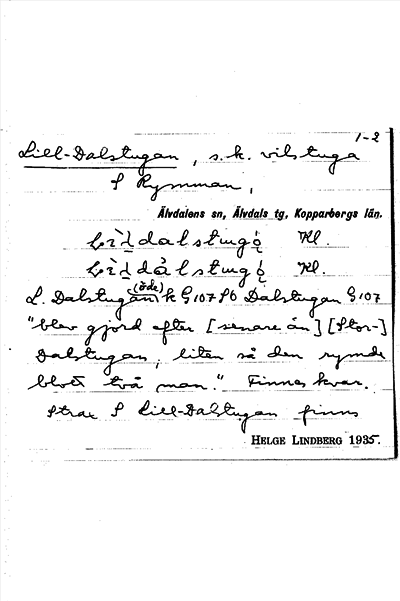 1-2
Lill-Dalstugan, s.k. vilstuga
S Rymman,
Älvdalens sn, Älvdals tg, Kopparbergs län.
Kl.
Kl.
L. Dalstugan (öde) k G107 Dalstugan G107
"blev gjord efter [senare än] [Stor-]
Dalstugan, liten så den rymde
blott två man." Finnes kvar.
Strax S Lill-Dalstugan finns
HELGE LINDBERG 1935.